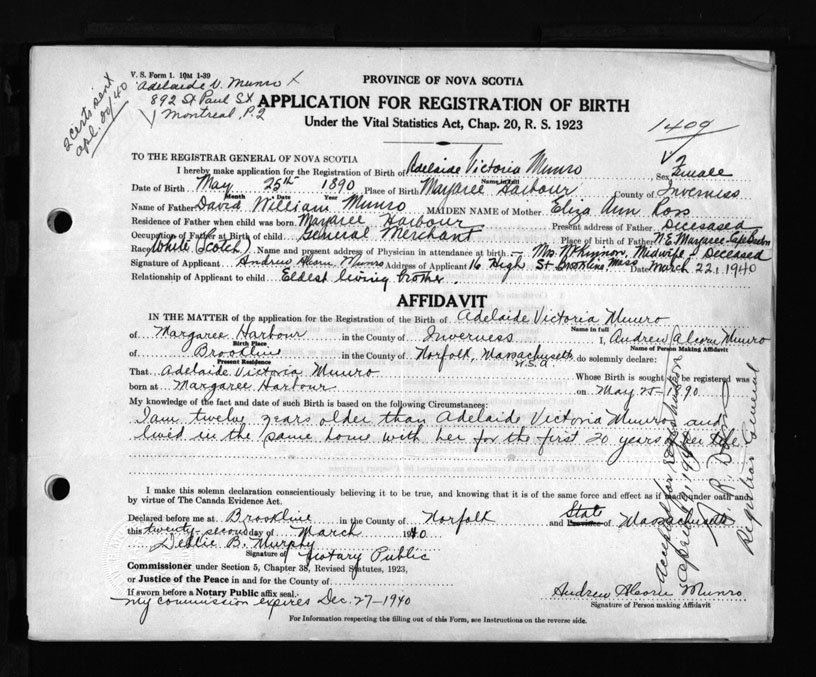 V. S. Form 1. 10M 1-39
PROVINCE OF NOVA SCOTIA
Adelaide V. Munro X
892 St Paul St X
Montreal, P.Q
2 certs sent
apl. 20/40
APPLICATION FOR REGISTRATION OF BIRTH
Under the Vital Statistics Act, Chap. 20, R. S. 1923
1409
TO THE REGISTRAR GENERAL OF NOVA SCOTIA
I hereby make application for the Registration of Birth of Adelaide Victoria Munro Sex Female
Name in full
Date of Birth May 25th 1890 Place of Birth Margaree Harbour County of Inverness
Month Date Year
Name of Father David William Munro MAIDEN NAME of Mother Eliza Ann Ross
Residence of Father when child was born Margaree Harbour Present address of Father Deceased
Occupation of Father at Birth of child General Merchant Place of birth of Father N E Margaree Cape Breton
Race White (Scotch) Name and present address of Physician in attendance at birth Mrs McKinnon, Midwife - Deceased
Signature of Applicant Andrew Alcorn Munro Address of Applicant 16 High St. Brookline, Mass Date March 22, 1940
Relationship of Applicant to child Eldest living brother.
AFFIDAVIT
IN THE MATTER of the application for the Registration of the Birth of Adelaide Victoria Munro
Name in full
of Margaree Harbour in the County of Inverness I, Andrew Alcorn Munro
Birth Place Name of Person Making Affidavit
of Brookline in the County of Norfolk, Massachusetts U.S.A. do solemnly declare:
Present Residence
That Adelaide Victoria Munro Whose Birth is sought to be registered was
born at Margaree Harbour on May 25-1890
My knowledge of the fact and date of such Birth is based on the following Circumstances:
I am twelve years older than Adelaide Victoria Munro and
lived in the same home with her for the first 20 years of her life
I make this solemn declaration conscientiously believing it to be true, and knowing that it is of the same force and effect as if made under oath and
by virtue of The Canada Evidence Act.
Declared before me at Brookline in the County of Norfolk and State Province of Massachusetts
this twenty-second day of March 1940
Nellie B. Murphy
Signature of Notary Public
Commissioner under Section 5, Chapter 38, Revised Statutes, 1923,
or Justice of the Peace in and for the County of
If sworn before a Notary Public affix seal.
My commission expires Dec. 27-1940
Andrew Alcorn Munro
Signature of Person making Affidavit
For Information respecting the filling out of this Form, see Instructions on the reverse side.
Accepted for Registration
April 1940
Registrar General